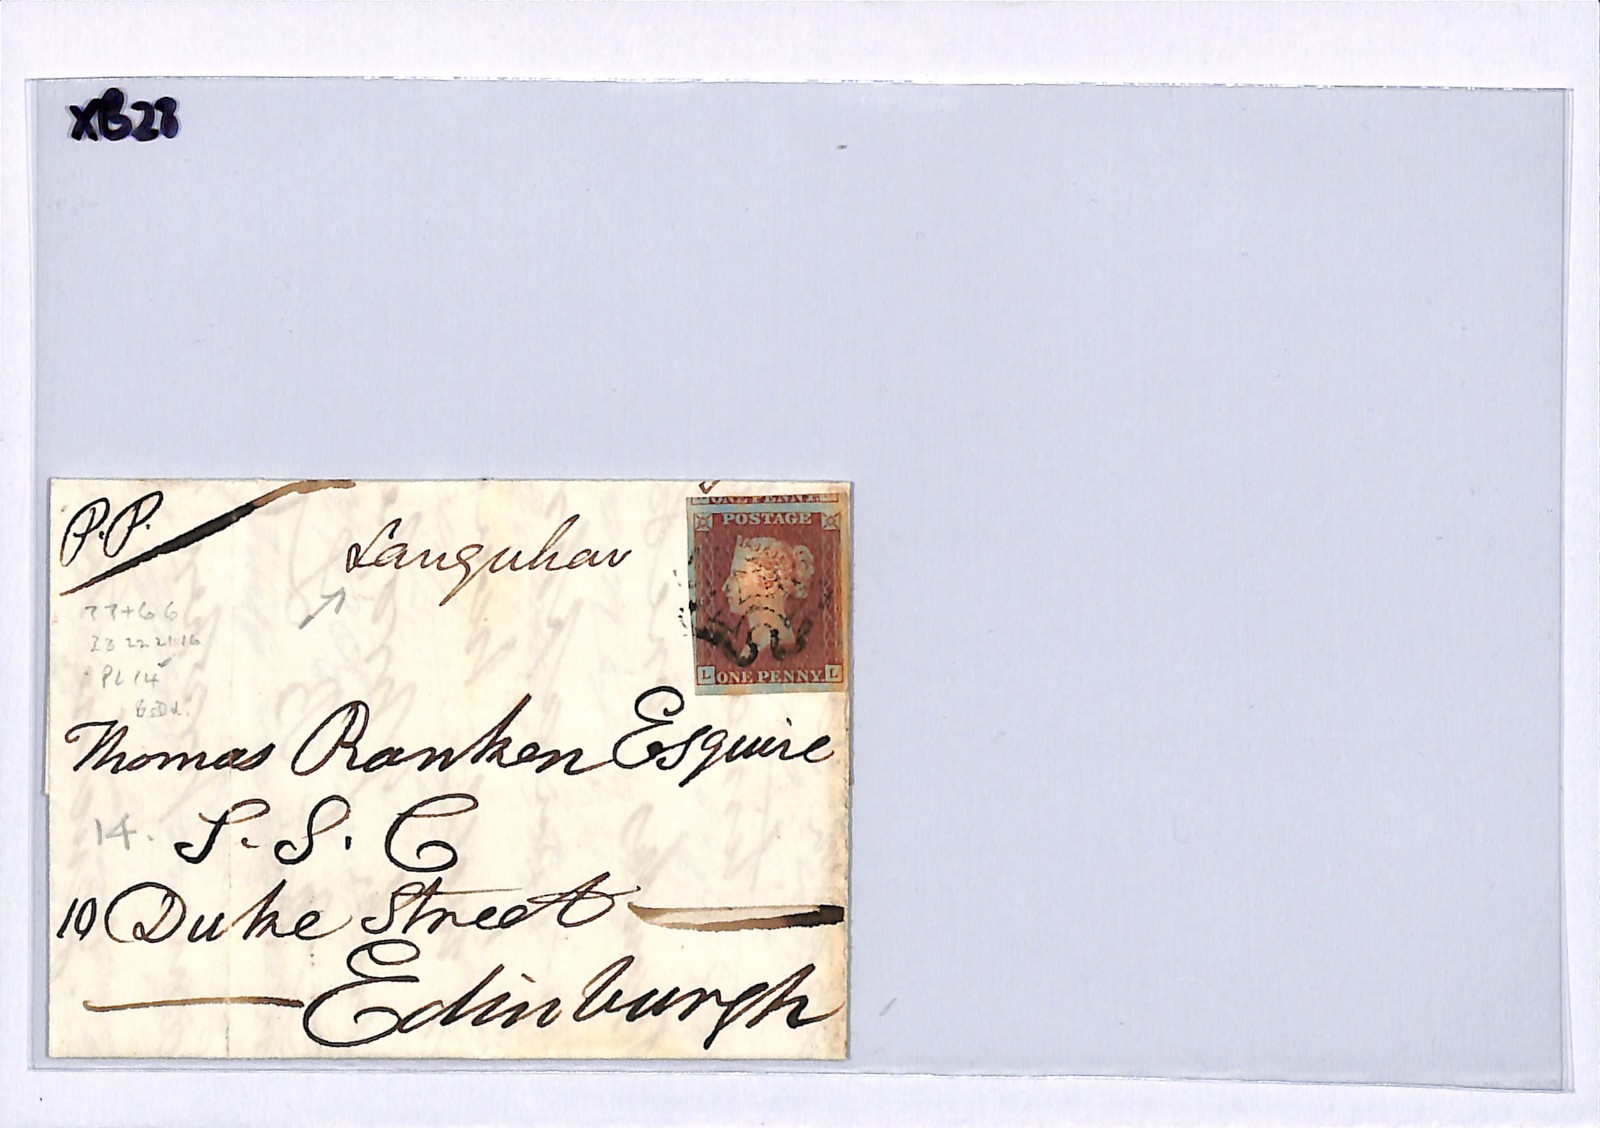 XB28
P.P.
Languhar
ONE PENNY
POSTAGE
L ONE PENNY L
23 22 21 16
PL 14
Thomas Ranken Esquire
14. S. S. C
10 Duke Street
Edinburgh